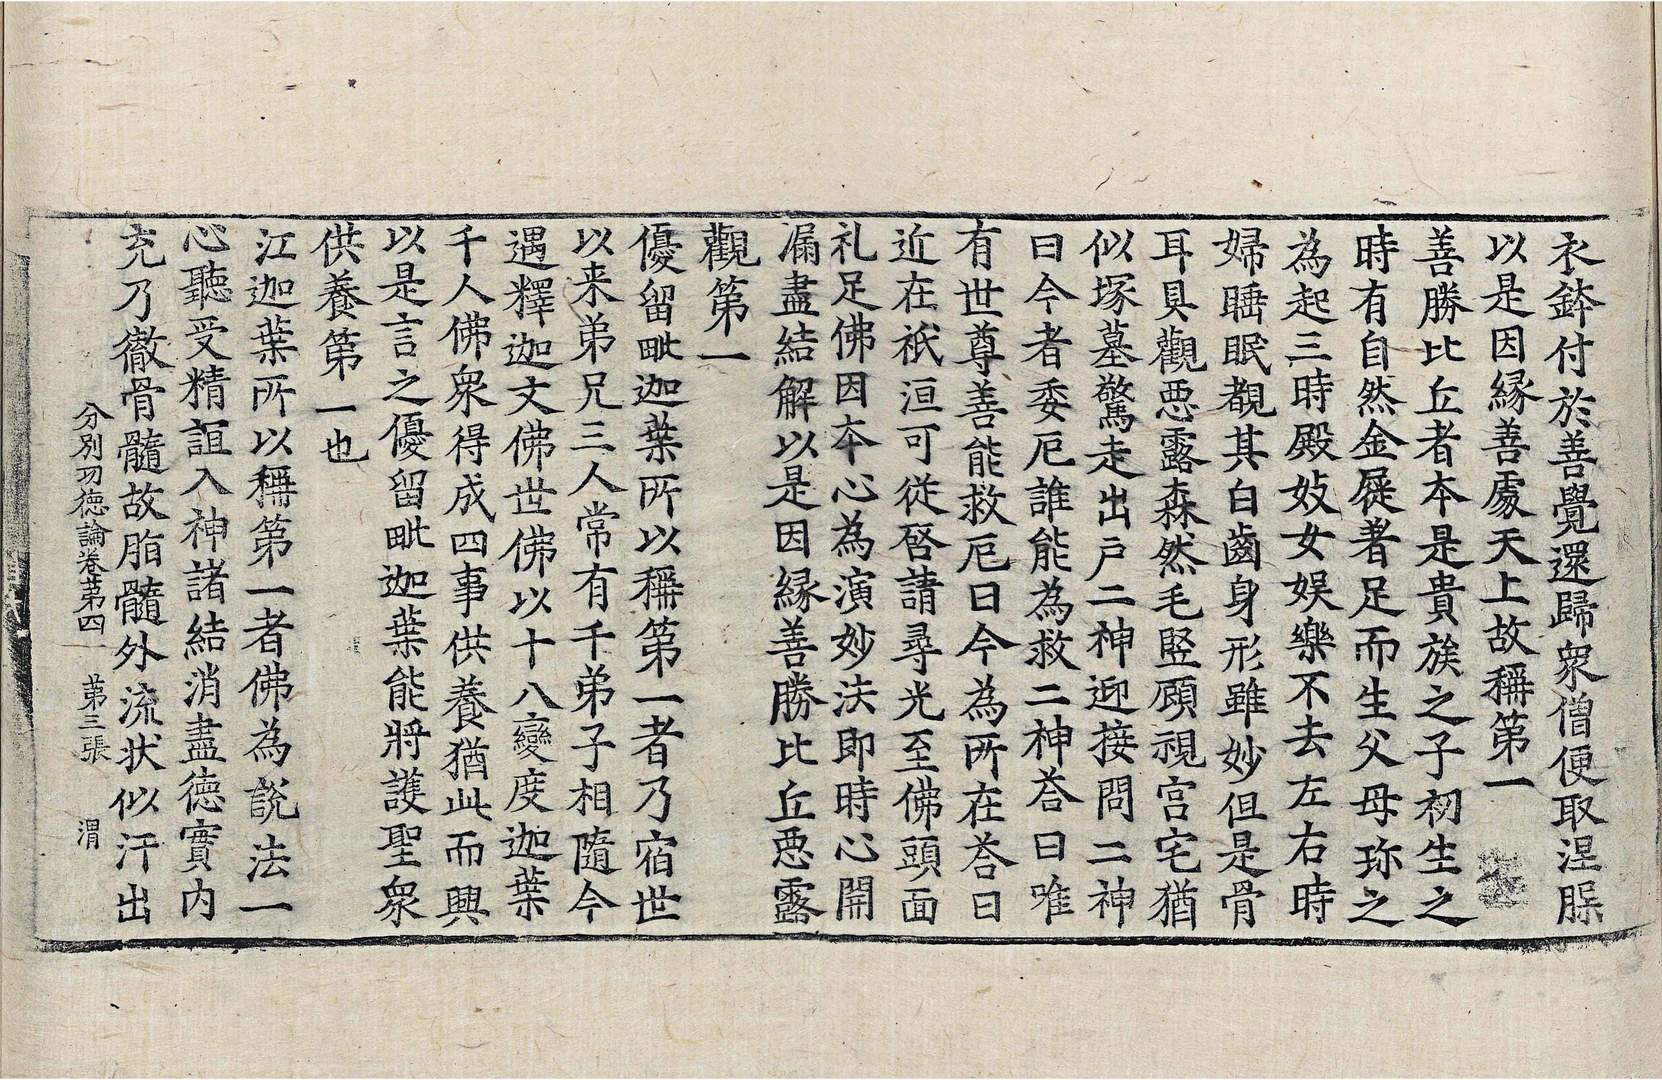 衣鉢付於善覺還歸衆僧便取涅脵
以是因縁善處天上故稱第一
善勝比丘者本是貴族之子初生之
時有自然金屣著足而生父母珎之
為起三時殿妓女娱樂不去左右時
婦睡眠覩其白齒身形雖妙但是骨
耳具觀悪露森然毛竪顧視宫宅猶
似塚墓驚走出戸二神迎接問二神
曰今者委厄誰能為救二神荅曰唯
有世尊善能救厄曰今為所在荅曰
近在祇洹可從啓請尋光至佛頭面
礼足佛因本心為演妙法即時心開
漏盡結解以是因縁善勝比丘悪露
觀第一
優留毗迦葉所以稱第一者乃宿世
以来弟兄三人常有千弟子相隨今
遇釋迦文佛世佛以十八變度迦葉
千人佛衆得成四事供養猶此而興
以是言之優留毗迦葉能將護聖衆
供養第一也
江迦葉所以稱第一者佛為説法一
心聽受精誼入神諸結消盡徳實内
充乃徹骨髓故脂髓外流状似汗出
分別功徳論卷第四 第三張 渭